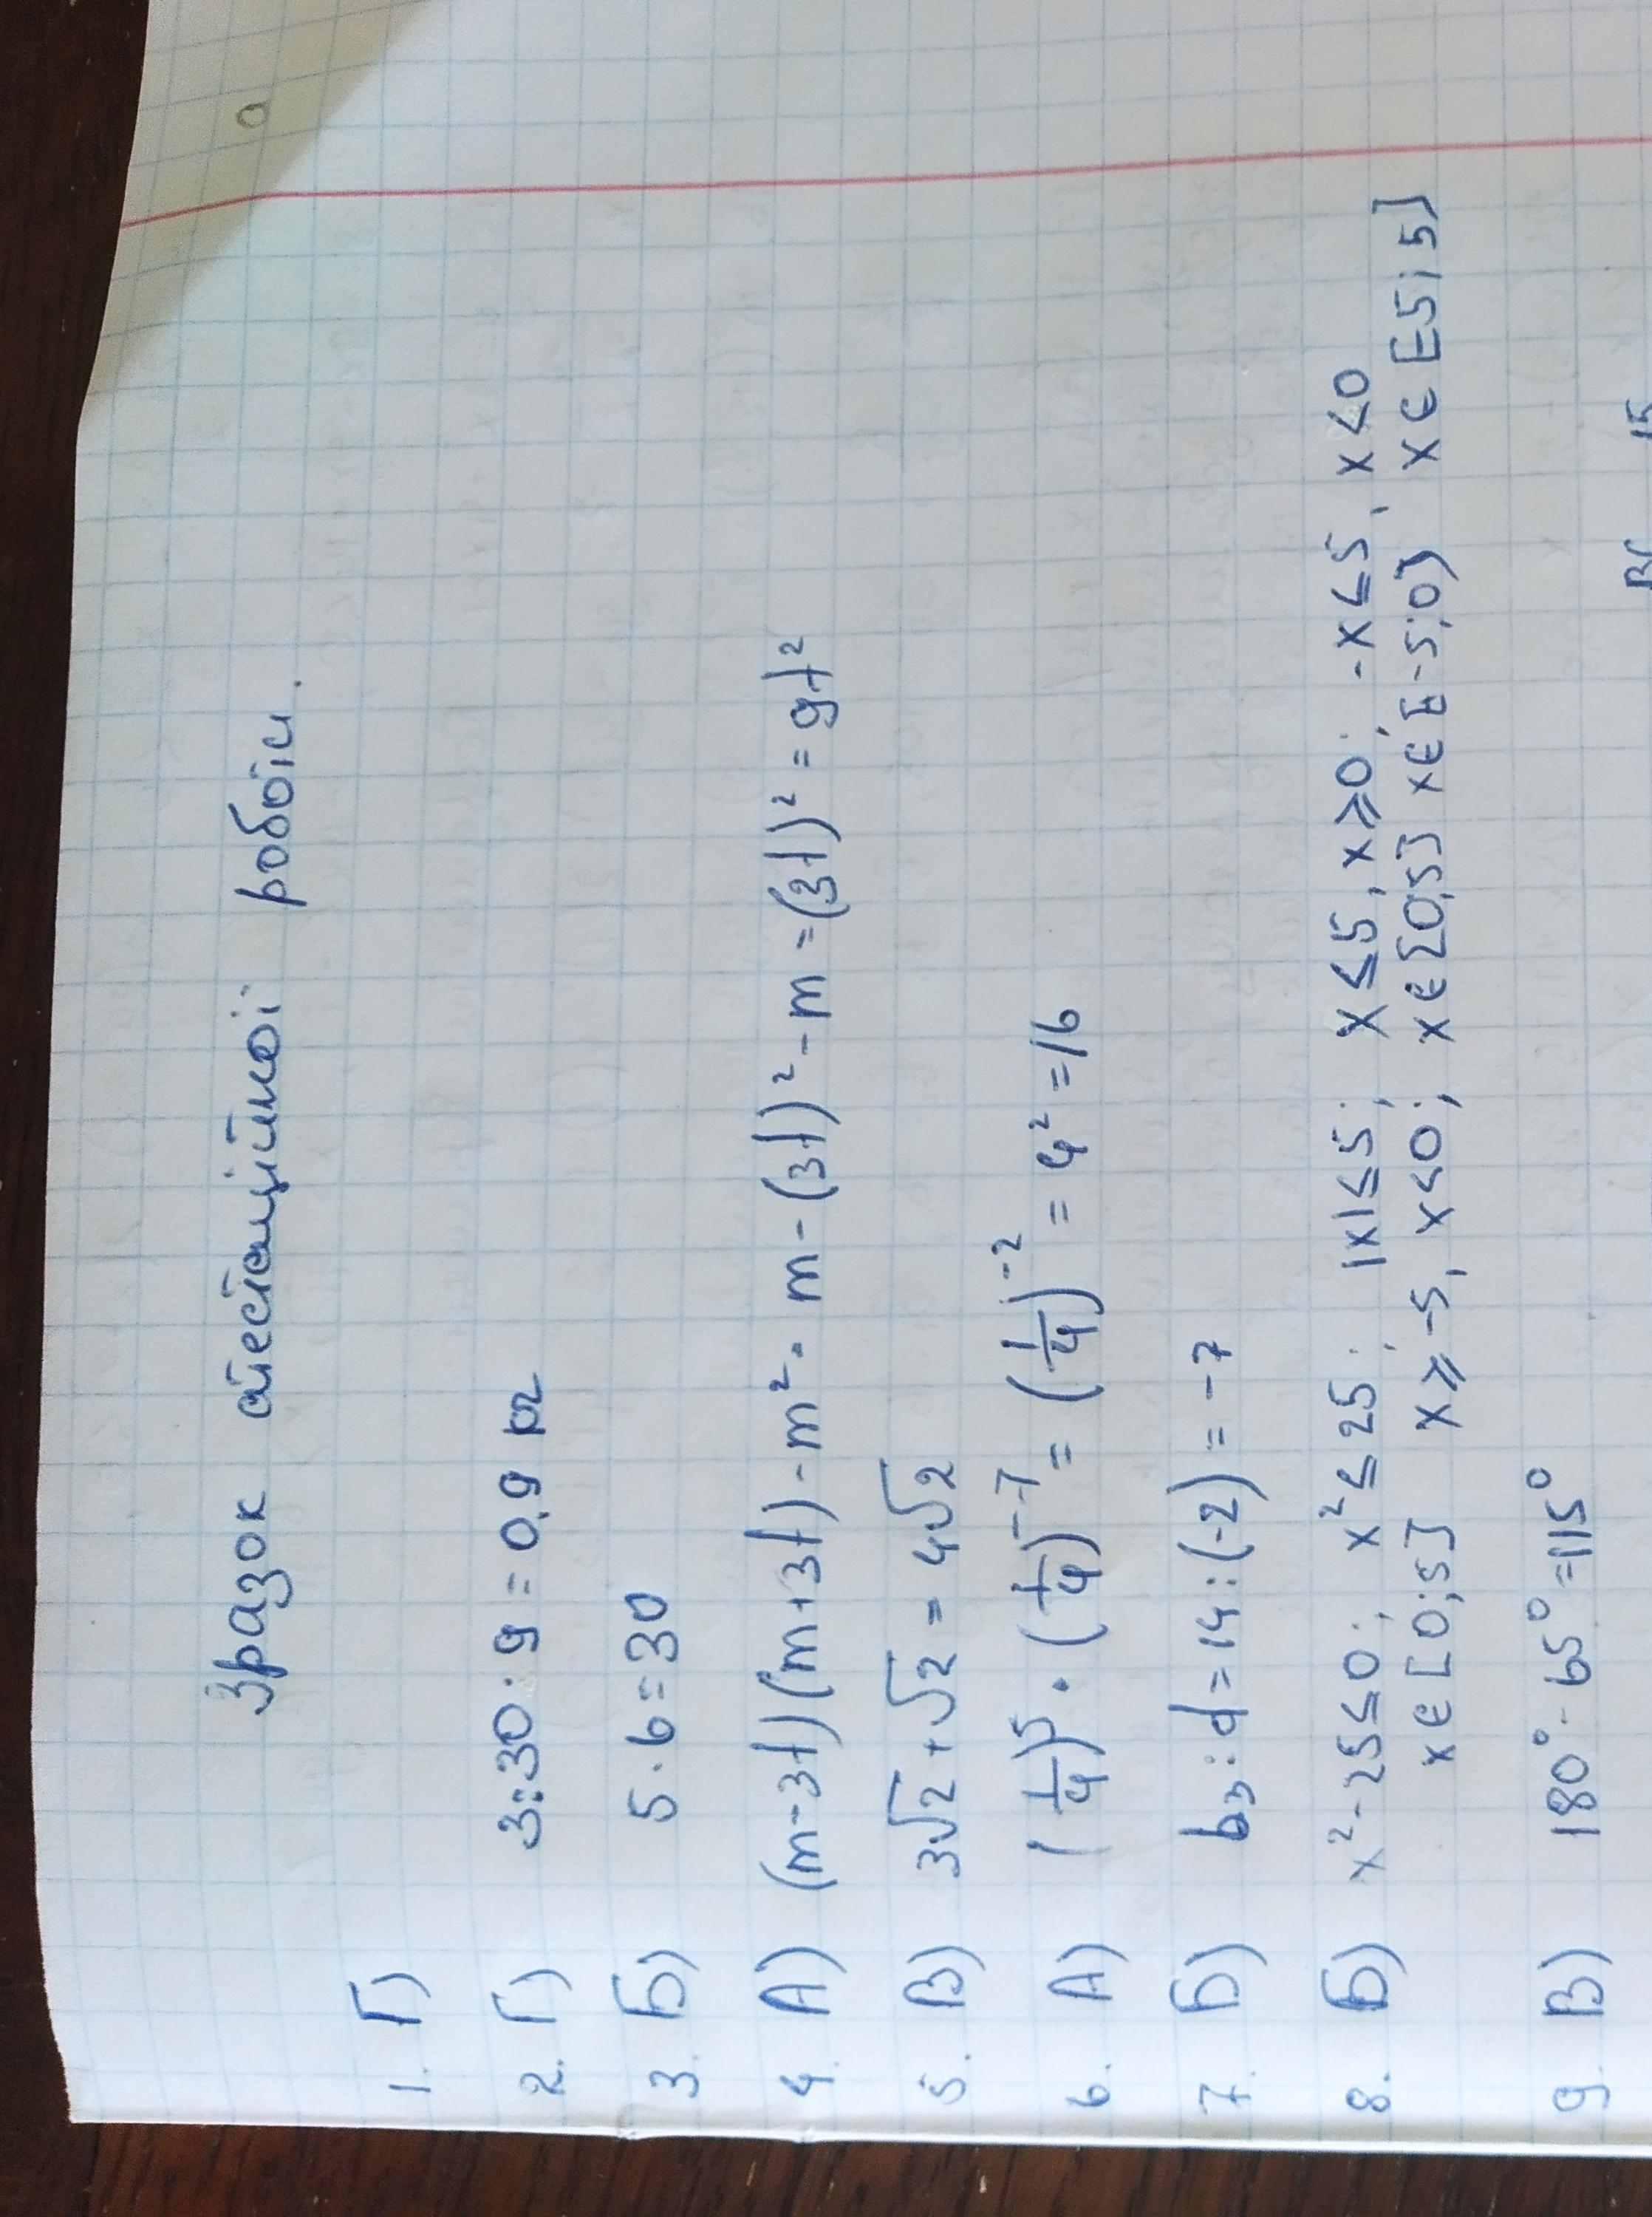 Зразок атестаційної роботи.
1. Г)
2. Г) 3:30·9=0,9 кг
3. Б) 5·6=30
4. А) (m-3t)(m+3t)-m²= m-(3t)²-m=(3t)²=9t²
5. В) 3√2+√2=4√2
6. А) (1/4)⁵·(1/4)⁻⁷=(1/4)⁻²=4²=16
7. Б) b₃:d=14:(-2)=-7
8. Б) x²-25≤0; x²≤25; |x|≤5; x≤5, x≥0; -x≤5, x<0
x∈[0;5] x≥-5, x<0; x∈[0;5] x∈[-5;0) x∈[-5;5]
9. В) 180°-65°=115°